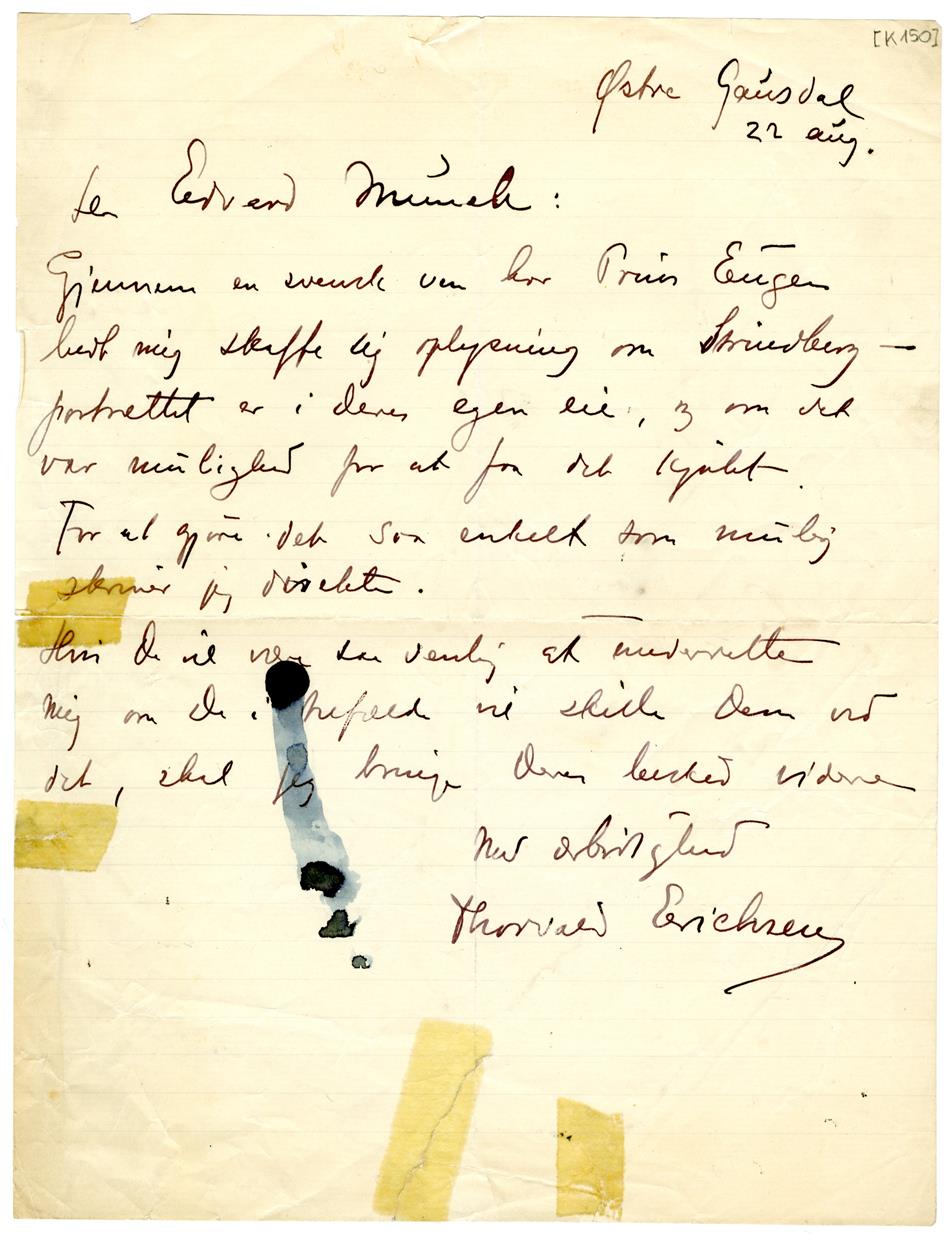 [K150]
Østre Gausdal
22 aug.
Edvard Munch:
Gjennem en svensk ven har Prins Eugen
bedt mig skaffe sig oplysning om Strindberg—
portrettet er i Deres egen eie, og om det
var mulighed for at faa det kjøbt.
For at gjøre det saa enkelt som mulig
skriver jeg direkte.
Hvis De vil være saa venlig at underrette
mig om De i tilfælde vil skille Dem ved
det, skal jeg bringe Deres besked videre
Med ærbødighed
Thorvald Erichsen